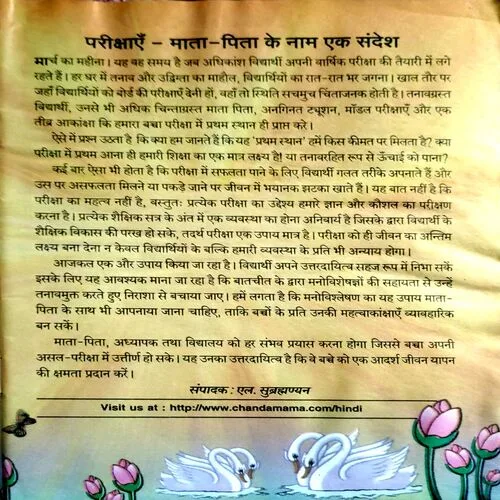 परीक्षाएँ – माता-पिता के नाम एक संदेश
मार्च का महीना। यह वह समय है जब अधिकांश विद्यार्थी अपनी वार्षिक परीक्षा की तैयारी में लगे
रहते हैं। हर घर में तनाव और उद्विग्नता का माहौल, विद्यार्थियों का रात-रात भर जगना। खाल तौर पर
जहाँ विद्यार्थियों को बोर्ड की परीक्षाएँ देनी हों, वहाँ तो स्थिति सचमुच चिंताजनक होती है। तनावग्रस्त
विद्यार्थी, उनसे भी अधिक चिन्ताग्रस्त माता पिता, अनगिनत ट्यूशन, मॉडल परीक्षाएँ और एक
तीव्र आकांक्षा कि हमारा बच्चा परीक्षा में प्रथम स्थान ही प्राप्त करे।
ऐसे में प्रश्न उठता है कि क्या हम जानते हैं कि यह 'प्रथम स्थान' हमें किस कीमत पर मिलता है? क्या
परीक्षा में प्रथम आना ही हमारी शिक्षा का एक मात्र लक्ष्य है! या तनावरहित रूप से ऊँचाई को पाना?
कई बार ऐसा भी होता है कि परीक्षा में सफलता पाने के लिए विद्यार्थी गलत तरीके अपनाते हैं और
उस पर असफलता मिलने या पकड़े जाने पर जीवन में भयानक झटका खाते हैं। यह बात नहीं है कि
परीक्षा का महत्व नहीं है, वस्तुतः प्रत्येक परीक्षा का उद्देश्य हमारे ज्ञान और कौशल का परीक्षण
करना है। प्रत्येक शैक्षिक सत्र के अंत में एक व्यवस्था का होना अनिवार्य है जिसके द्वारा विद्यार्थी के
शैक्षिक विकास की परख हो सके, तदर्थ परीक्षा एक उपाय मात्र है। परीक्षा को ही जीवन का अन्तिम
लक्ष्य बना देना न केवल विद्यार्थियों के बल्कि हमारी व्यवस्था के प्रति भी अन्याय होगा।
आजकल एक और उपाय किया जा रहा है। विद्यार्थी अपने उत्तरदायित्व सहज रूप में निभा सकें
इसके लिए यह आवश्यक माना जा रहा है कि बातचीत के द्वारा मनोविशेषज्ञों की सहायता से उन्हें
तनावमुक्त करते हुए निराशा से बचाया जाए। हमें लगता है कि मनोविश्लेषण का यह उपाय माता-
पिता के साथ भी आपनाया जाना चाहिए, ताकि बच्चों के प्रति उनकी महत्वाकांक्षाएँ व्यावहारिक
बन सकें।
माता-पिता, अध्यापक तथा विद्यालय को हर संभव प्रयास करना होगा जिससे बच्चा अपनी
असल-परीक्षा में उत्तीर्ण हो सके। यह उनका उत्तरदायित्व है कि वे बच्चे को एक आदर्श जीवन यापन
की क्षमता प्रदान करें।
संपादक : एल. सुब्रह्मण्यन
Visit us at : http://www.chandamama.com/hindi